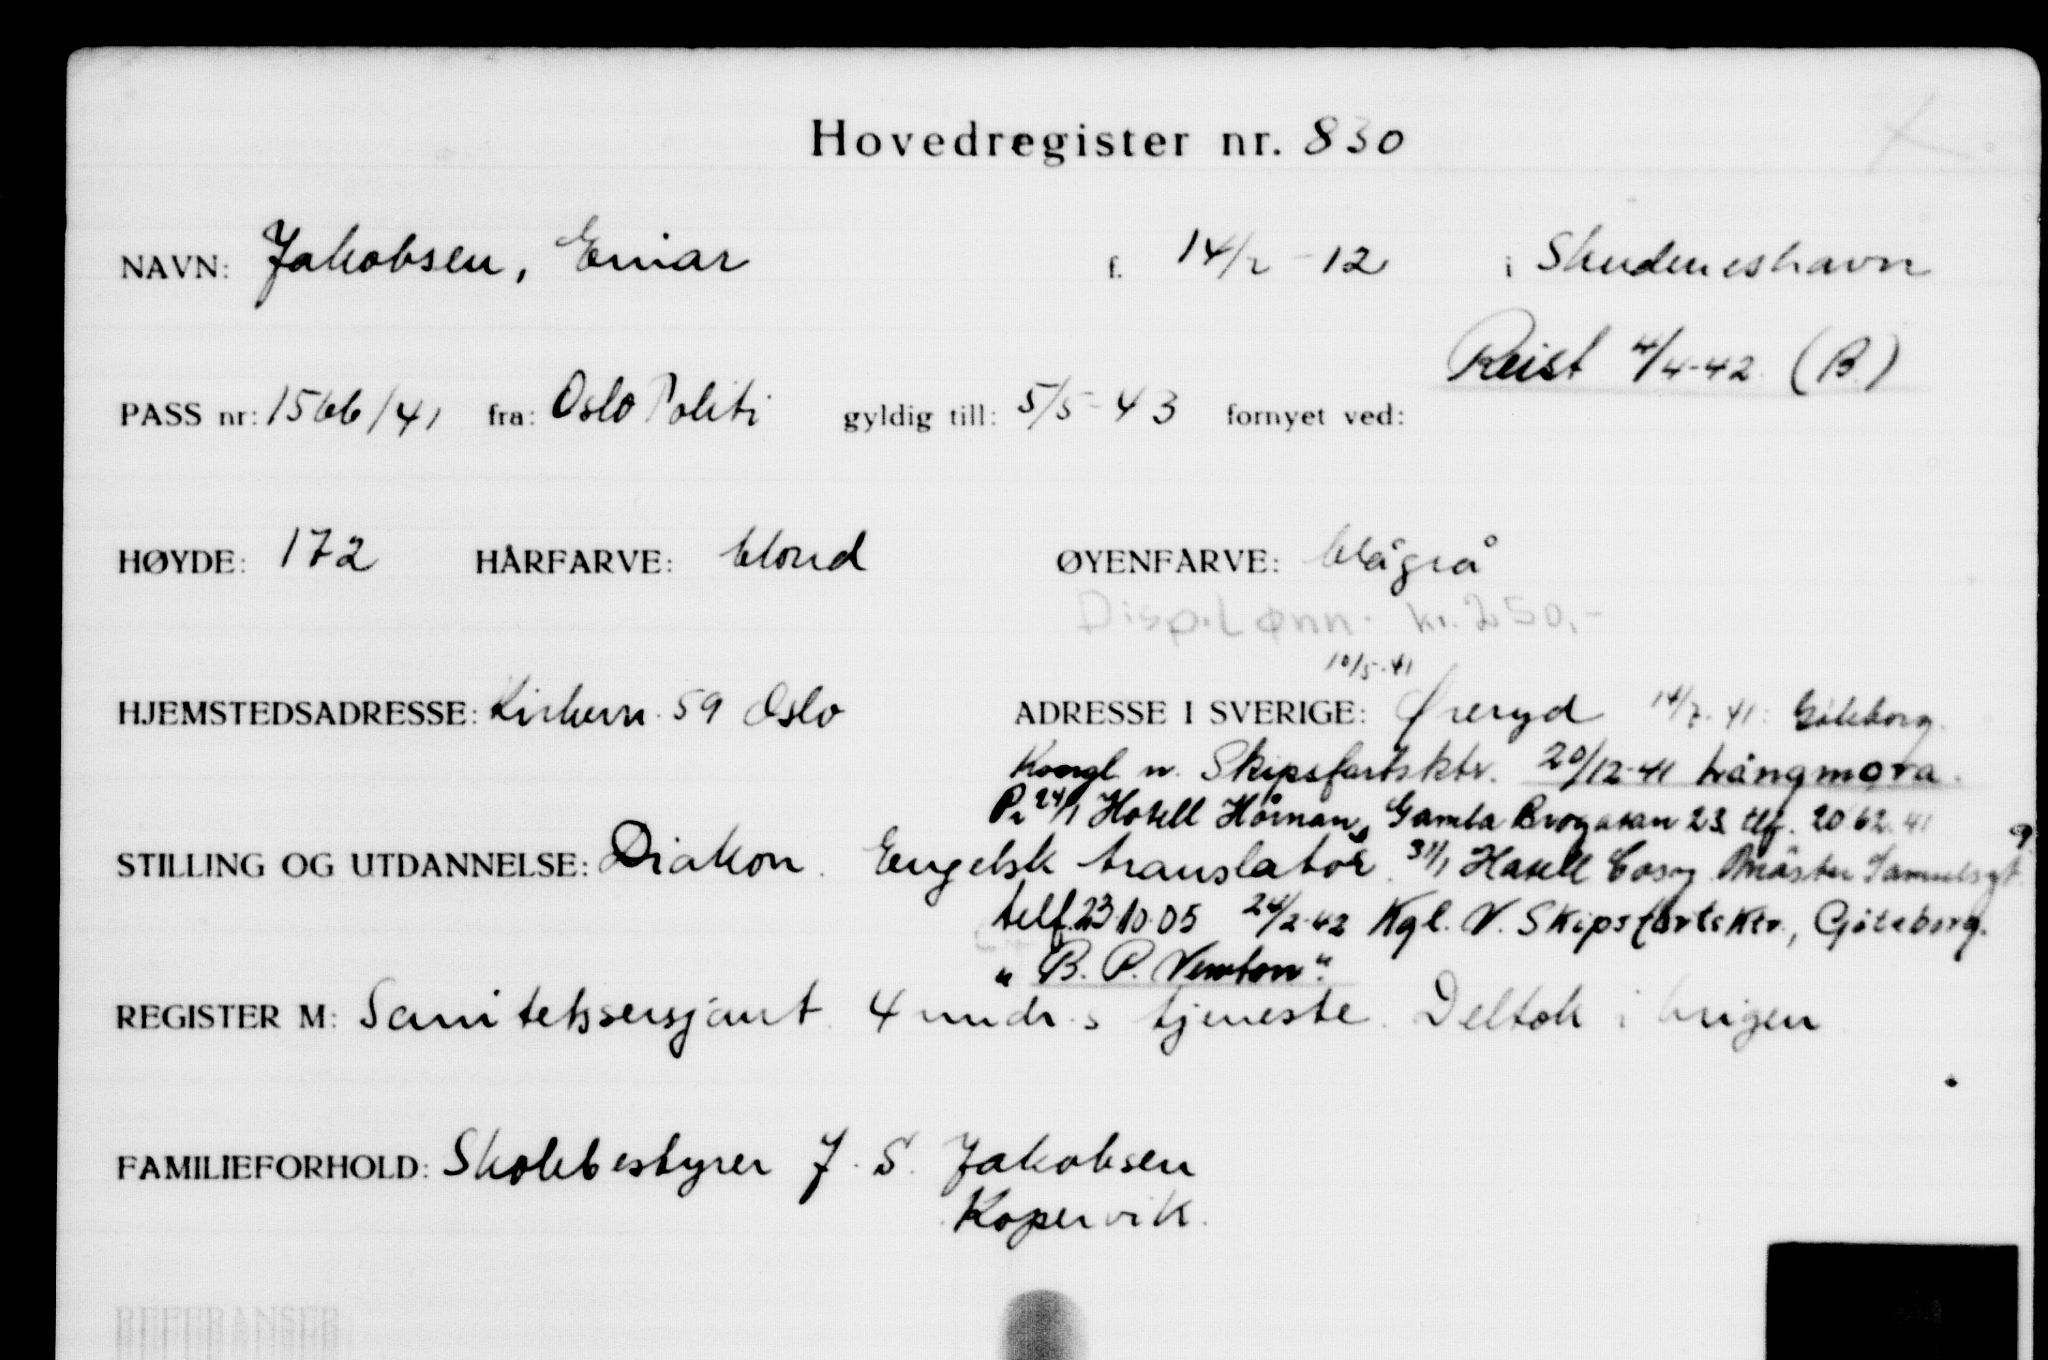 Hovedregister nr. 830
NAVN: Jakobsen, Einar f. 14/2 - 12 i Skudeneshavn
Reist 4/4-42 (B)
PASS nr: 1566/41 fra: Oslo Politi gyldig till: 5/5 - 43 fornyet ved:
HØYDE: 172 HÅRFARVE: blond ØYENFARVE: blågrå
Disp. Lønn. kr. 250,-
10/5-41
HJEMSTEDSADRESSE: Kirkevn. 59 Oslo ADRESSE I SVERIGE: Øreryd 14/7-41: Göteborg.
Kongl. n. Skipsfartsktr. 20/12-41 Långmora.
24/1 Hotell Hörnan, Gamla Brogatan 23 tlf. 20 62 41
STILLING OG UTDANNELSE: Diakon. Engelsk translatør. 31/1 Hotell Cosy Mäster Samuelsgt. 9
telf. 23 10 05 24/2-42 Kgl. N. Skipsfartsktr., Göteborg.
"B. P. Newton".
REGISTER M: Sanitetssersjant. 4 mndr.s tjeneste. Deltok i krigen
FAMILIEFORHOLD: Skolebestyrer J. S. Jakobsen
Kopervik.
REFERANSER